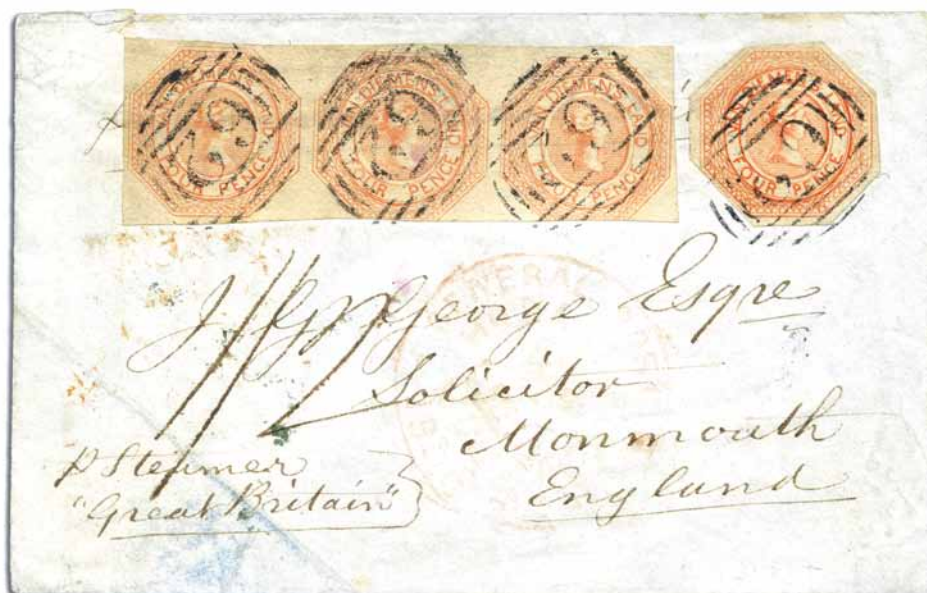 VAN DIEMENS LAND FOUR PENCE
VAN DIEMENS LAND FOUR PENCE
VAN DIEMENS LAND FOUR PENCE
VAN DIEMENS LAND FOUR PENCE
George Esqre
Solicitor
Monmouth
England
p Steamer
"Great Britain"